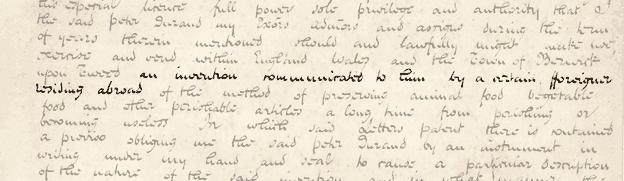 his especial licence full power sole privilege and authority that I
the said Peter Durand my Exors admors and assigns during the term
of years therein mentioned should and lawfully might make use
exercise and vend within England Wales and the Town of Berwick
upon Tweed an invention communicated to him by a certain fforeigner
residing abroad of the method of preserving animal food vegetable
food and other perishable articles a long time from perishing or
becoming useless In which said Letters patent there is contained
a proviso obliging me the said Peter Durand by an instrument in
writing under my hand and seal to cause a particular description
of the nature of the said invention and in what manner the